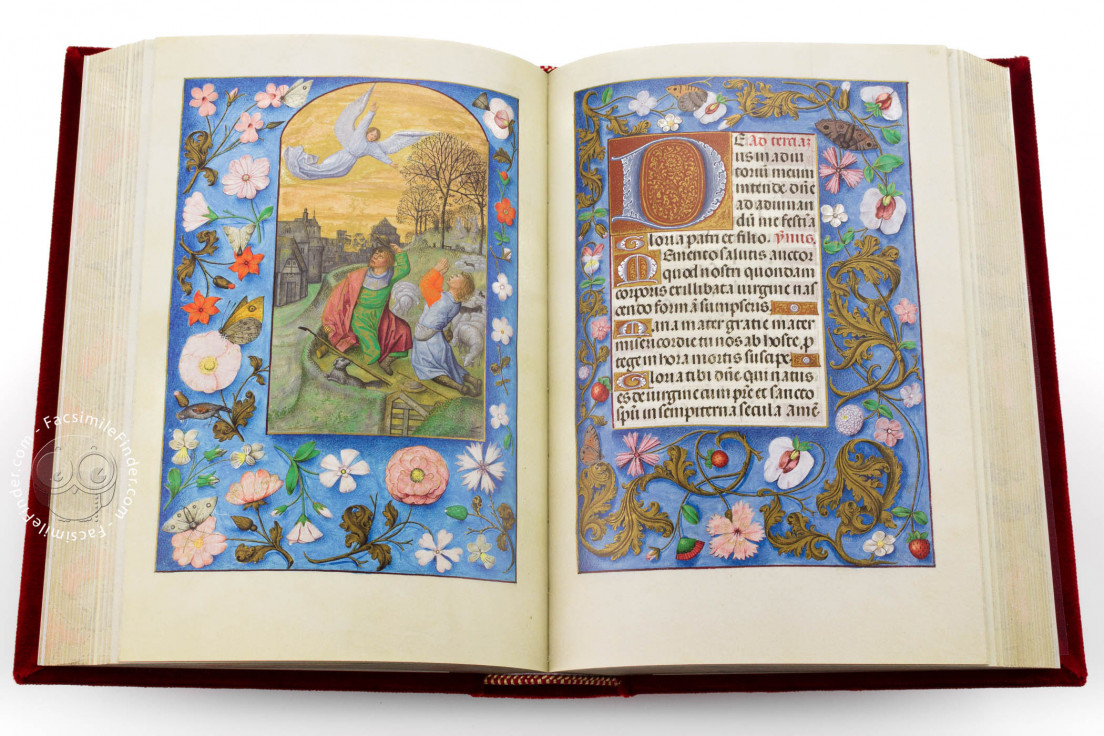 E Ad tercia3
D
us in adiu
toriū meum
intende. dn̄e
ad adiuuan
dū me festīa
Gloria patri et filio. ẏmnis.
Memento salutis auctor
quod nostri quondam
corporis ex illibata uirgine nas
cendo formam sumpseris
Maria mater gratie mater
misericordie tu nos ab hoste p̄
tege in hora mortis suscipe
Gloria tibi dn̄e qui natus
es de uirgine cum pr̄e et sancto
sp̄u in sempiterna secula amē
FacsimileFinder.com - FacsimileFinder.com - FacsimileFinder.com